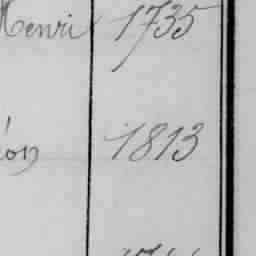 Henri 1735
éon 1813